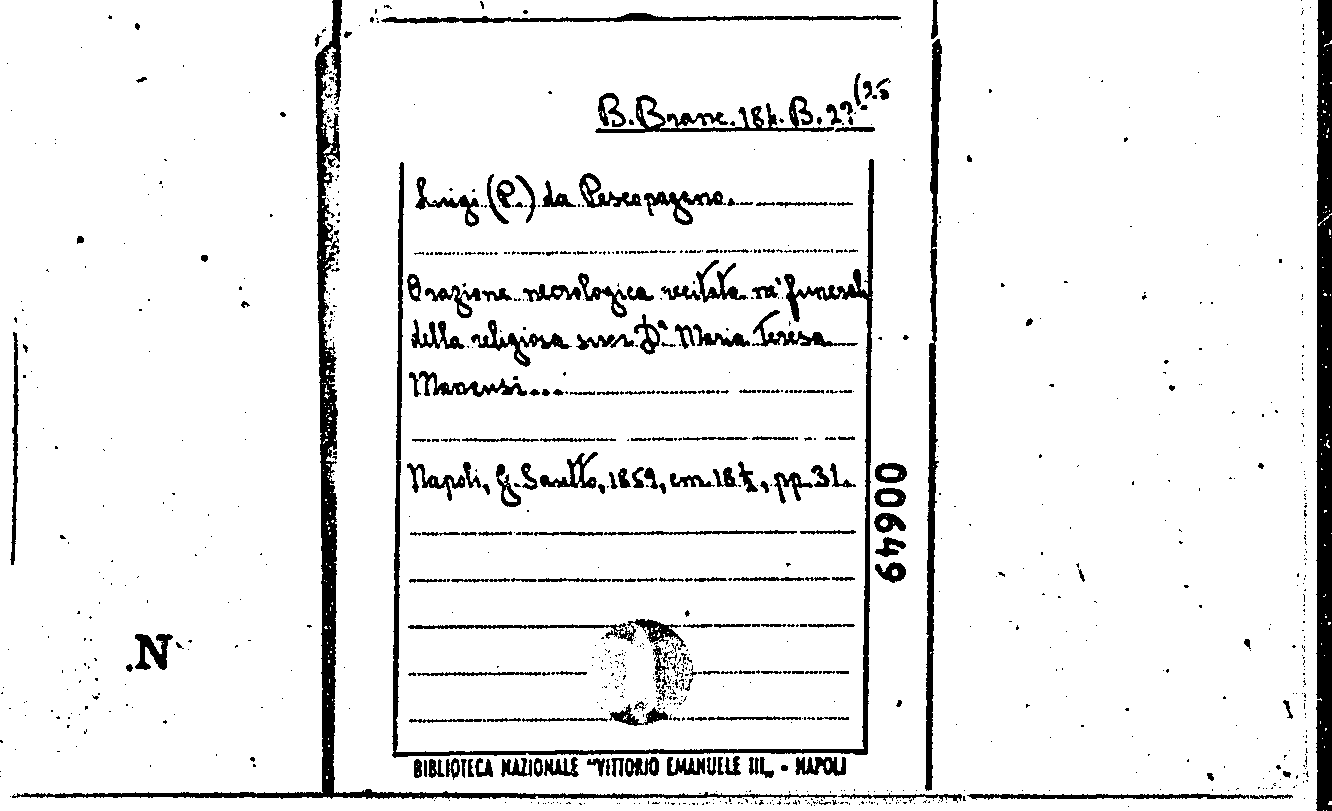 B. Branc. 184. B. 27 (25
Luigi (P.) da Pescopagano.
Orazione necrologica recitata ne' funerali
della religiosa suor D.ª Maria Teresa
Marensi...
Napoli, G. Sautto, 1859, cm. 18½, pp. 31.
00649
.N
BIBLIOTECA NAZIONALE "VITTORIO EMANUELE III„ - NAPOLI